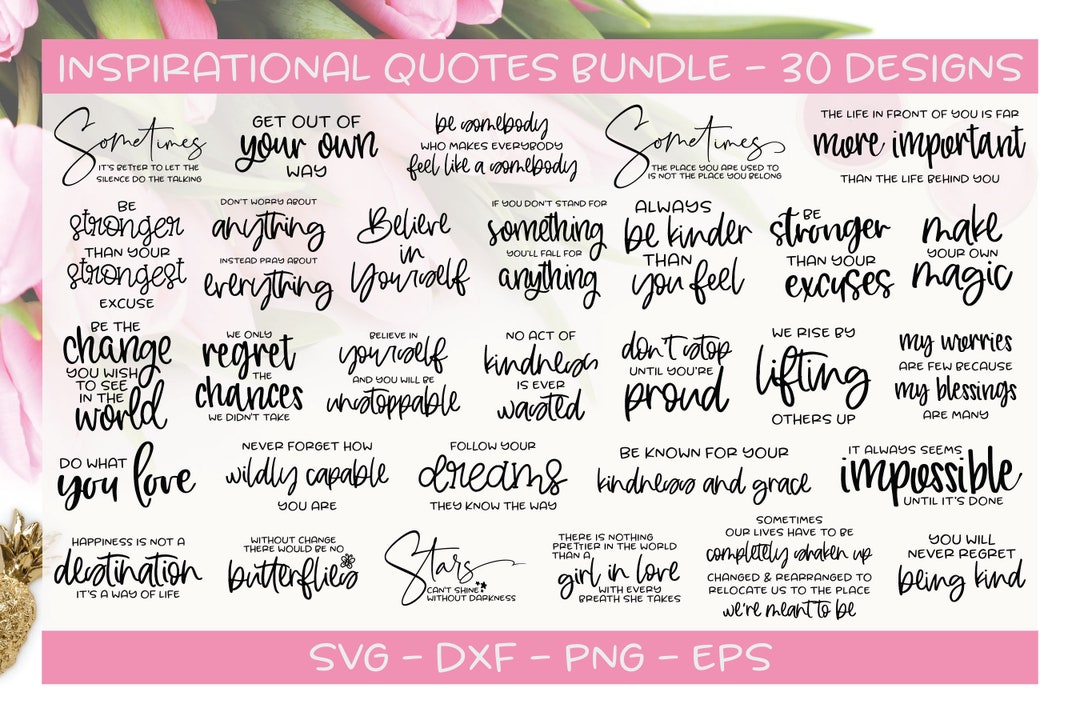 INSPIRATIONAL QUOTES BUNDLE – 30 DESIGNS
Sometimes
IT'S BETTER TO LET THE
SILENCE DO THE TALKING
GET OUT OF
your own
WAY
be somebody
WHO MAKES EVERYBODY
feel like a somebody
Sometimes
THE PLACE YOU ARE USED TO
IS NOT THE PLACE YOU BELONG
THE LIFE IN FRONT OF YOU IS FAR
more important
THAN THE LIFE BEHIND YOU
BE
stronger
THAN YOUR
strongest
EXCUSE
DON'T WORRY ABOUT
anything
INSTEAD PRAY ABOUT
everything
Believe
in
Yourself
IF YOU DON'T STAND FOR
something
YOU'LL FALL FOR
anything
ALWAYS
be kinder
THAN
you feel
BE
stronger
THAN YOUR
excuses
make
YOUR OWN
magic
BE THE
change
YOU WISH
TO SEE
IN THE
world
WE ONLY
regret
THE
chances
WE DIDN'T TAKE
BELIEVE IN
yourself
AND YOU WILL BE
unstoppable
NO ACT OF
kindness
IS EVER
wasted
don't stop
UNTIL YOU'RE
proud
WE RISE BY
lifting
OTHERS UP
my worries
ARE FEW BECAUSE
my blessings
ARE MANY
DO WHAT
you love
NEVER FORGET HOW
wildly capable
YOU ARE
FOLLOW YOUR
dreams
THEY KNOW THE WAY
BE KNOWN FOR YOUR
kindness and grace
IT ALWAYS SEEMS
impossible
UNTIL IT'S DONE
HAPPINESS IS NOT A
destination
IT'S A WAY OF LIFE
WITHOUT CHANGE
THERE WOULD BE NO
butterflies
Stars
CAN'T SHINE
WITHOUT DARKNESS
THERE IS NOTHING
PRETTIER IN THE WORLD
THAN A
girl in love
WITH EVERY
BREATH SHE TAKES
SOMETIMES
OUR LIVES HAVE TO BE
completely shaken up
CHANGED & REARRANGED TO
RELOCATE US TO THE PLACE
we're meant to be
YOU WILL
NEVER REGRET
being kind
SVG – DXF – PNG – EPS